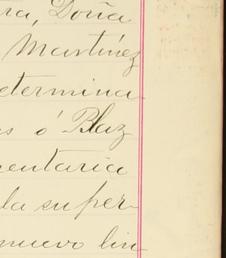 ra, Doña
Martínez
etermina
s ó Blaz
entaria
la super-
nuevo lin